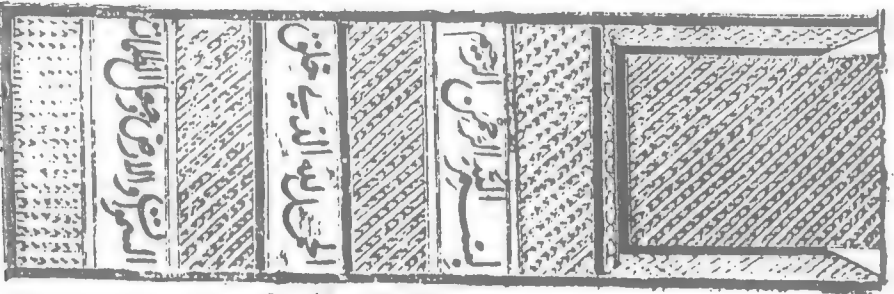 بسم الله الرحمن الرحيم
الحمد لله الذي خلق
السموات والارض وجعل الظلمات